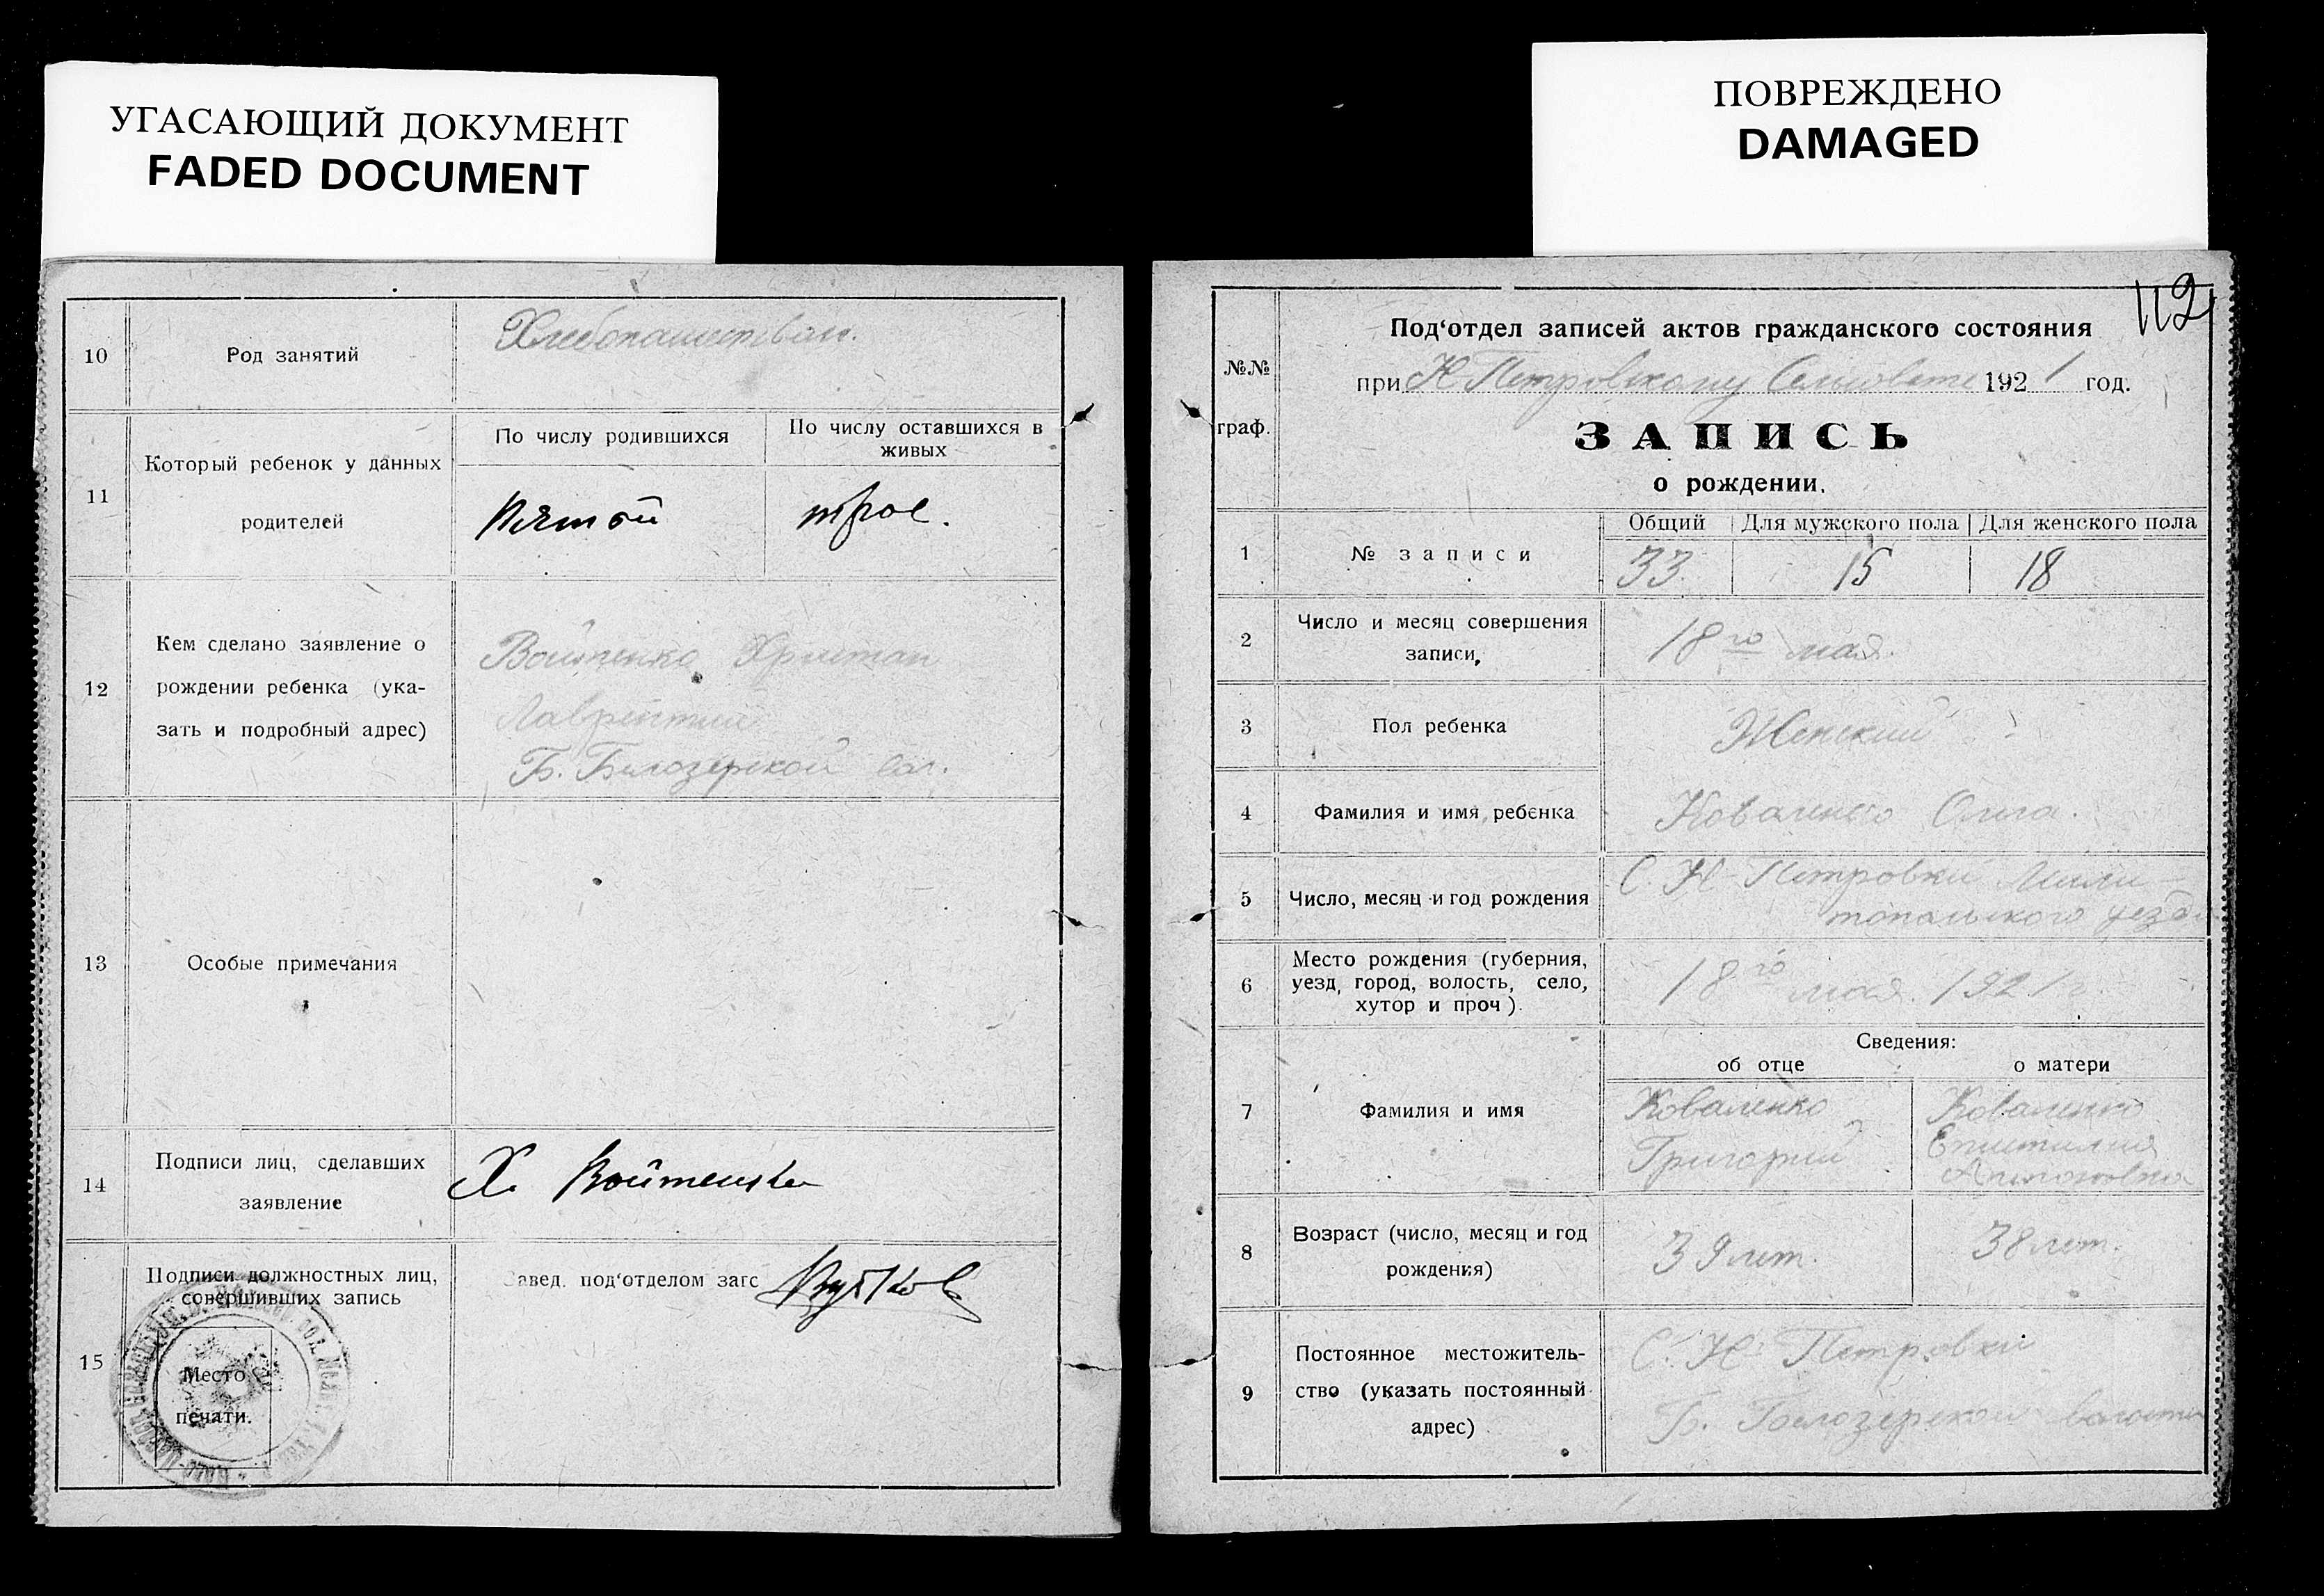 УГАСАЮЩИЙ ДОКУМЕНТ
FADED DOCUMENT
10
Род занятий
Хлебопашество.
11
Который ребенок у данных
родителей
По числу родившихся
По числу оставшихся в
живых
Пятой
трое.
12
Кем сделано заявление о
рождении ребенка (ука-
зать и подробный адрес)
Войтенко Христан
Лаврентий
Б. Белозерской вол.
13
Особые примечания
14
Подписи лиц, сделавших
заявление
Х. Войтенко
15
Подписи должностных лиц,
совершивших запись
Место
печати.
Завед. под‘отделом загс
ПОВРЕЖДЕНО
DAMAGED
112
№№
граф.
Под‘отдел записей актов гражданского состояния
при Н Петровскому Сельсовете 1921 год.
ЗАПИСЬ
о рождении.
1
№ записи
Общий
Для мужского пола
Для женского пола
33
15
18
2
Число и месяц совершения
записи,
18го мая.
3
Пол ребенка
Женский
4
Фамилия и имя ребенка
Коваленко Ольга.
5
Число, месяц и год рождения
С. Н-Петровки Мели-
топольского уезд.
6
Место рождения (губерния,
уезд, город, волость, село,
хутор и проч).
18го мая. 1921 г.
Сведения:
об отце
о матери
7
Фамилия и имя
Коваленко
Григорий
Коваленко
8
Возраст (число, месяц и год
рождения)
39 лет.
38 лет.
9
Постоянное местожитель-
ство (указать постоянный
адрес)
С. Н. Петровки
Б. Белозерской волости